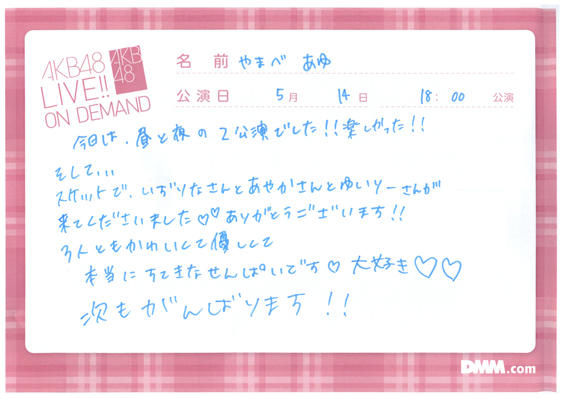 AKB48
LIVE!!
ON DEMAND
AKB
48
名前 やまべ あゆ
公演日 5月 14日 18:00 公演
今日は、昼と夜の2公演でした!!楽しかった!!
そして...
スケットで、いずりなさんとあやかさんとゆいりーさんが
来てくださいました♡♡ありがとうございます!!
3人ともかわいくて優しくて
本当にすてきなせんぱいです♡ 大好き♡♡
次もがんばります!!
DMM.com